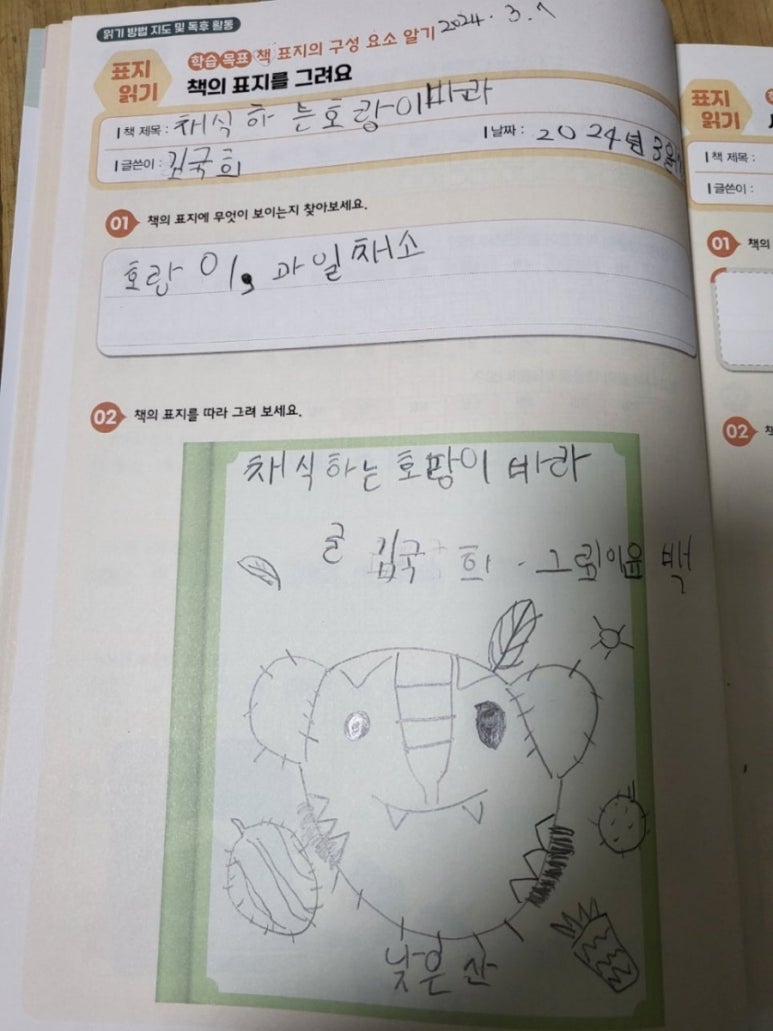 읽기 방법 지도 및 독후 활동
학습 목표 책 표지의 구성 요소 알기 2024. 3. 7
표지 읽기
책의 표지를 그려요
책 제목 : 채식하는호랑이바라
글쓴이 : 김국희
날짜 : 2024년 3월
01 책의 표지에 무엇이 보이는지 찾아보세요.
호랑이, 과일채소
02 책의 표지를 따라 그려 보세요.
채식하는 호랑이 바라
글 김국희 · 그림이윤백
낮은산
표지 읽기
책 제목 :
글쓴이 :
01 책의
02